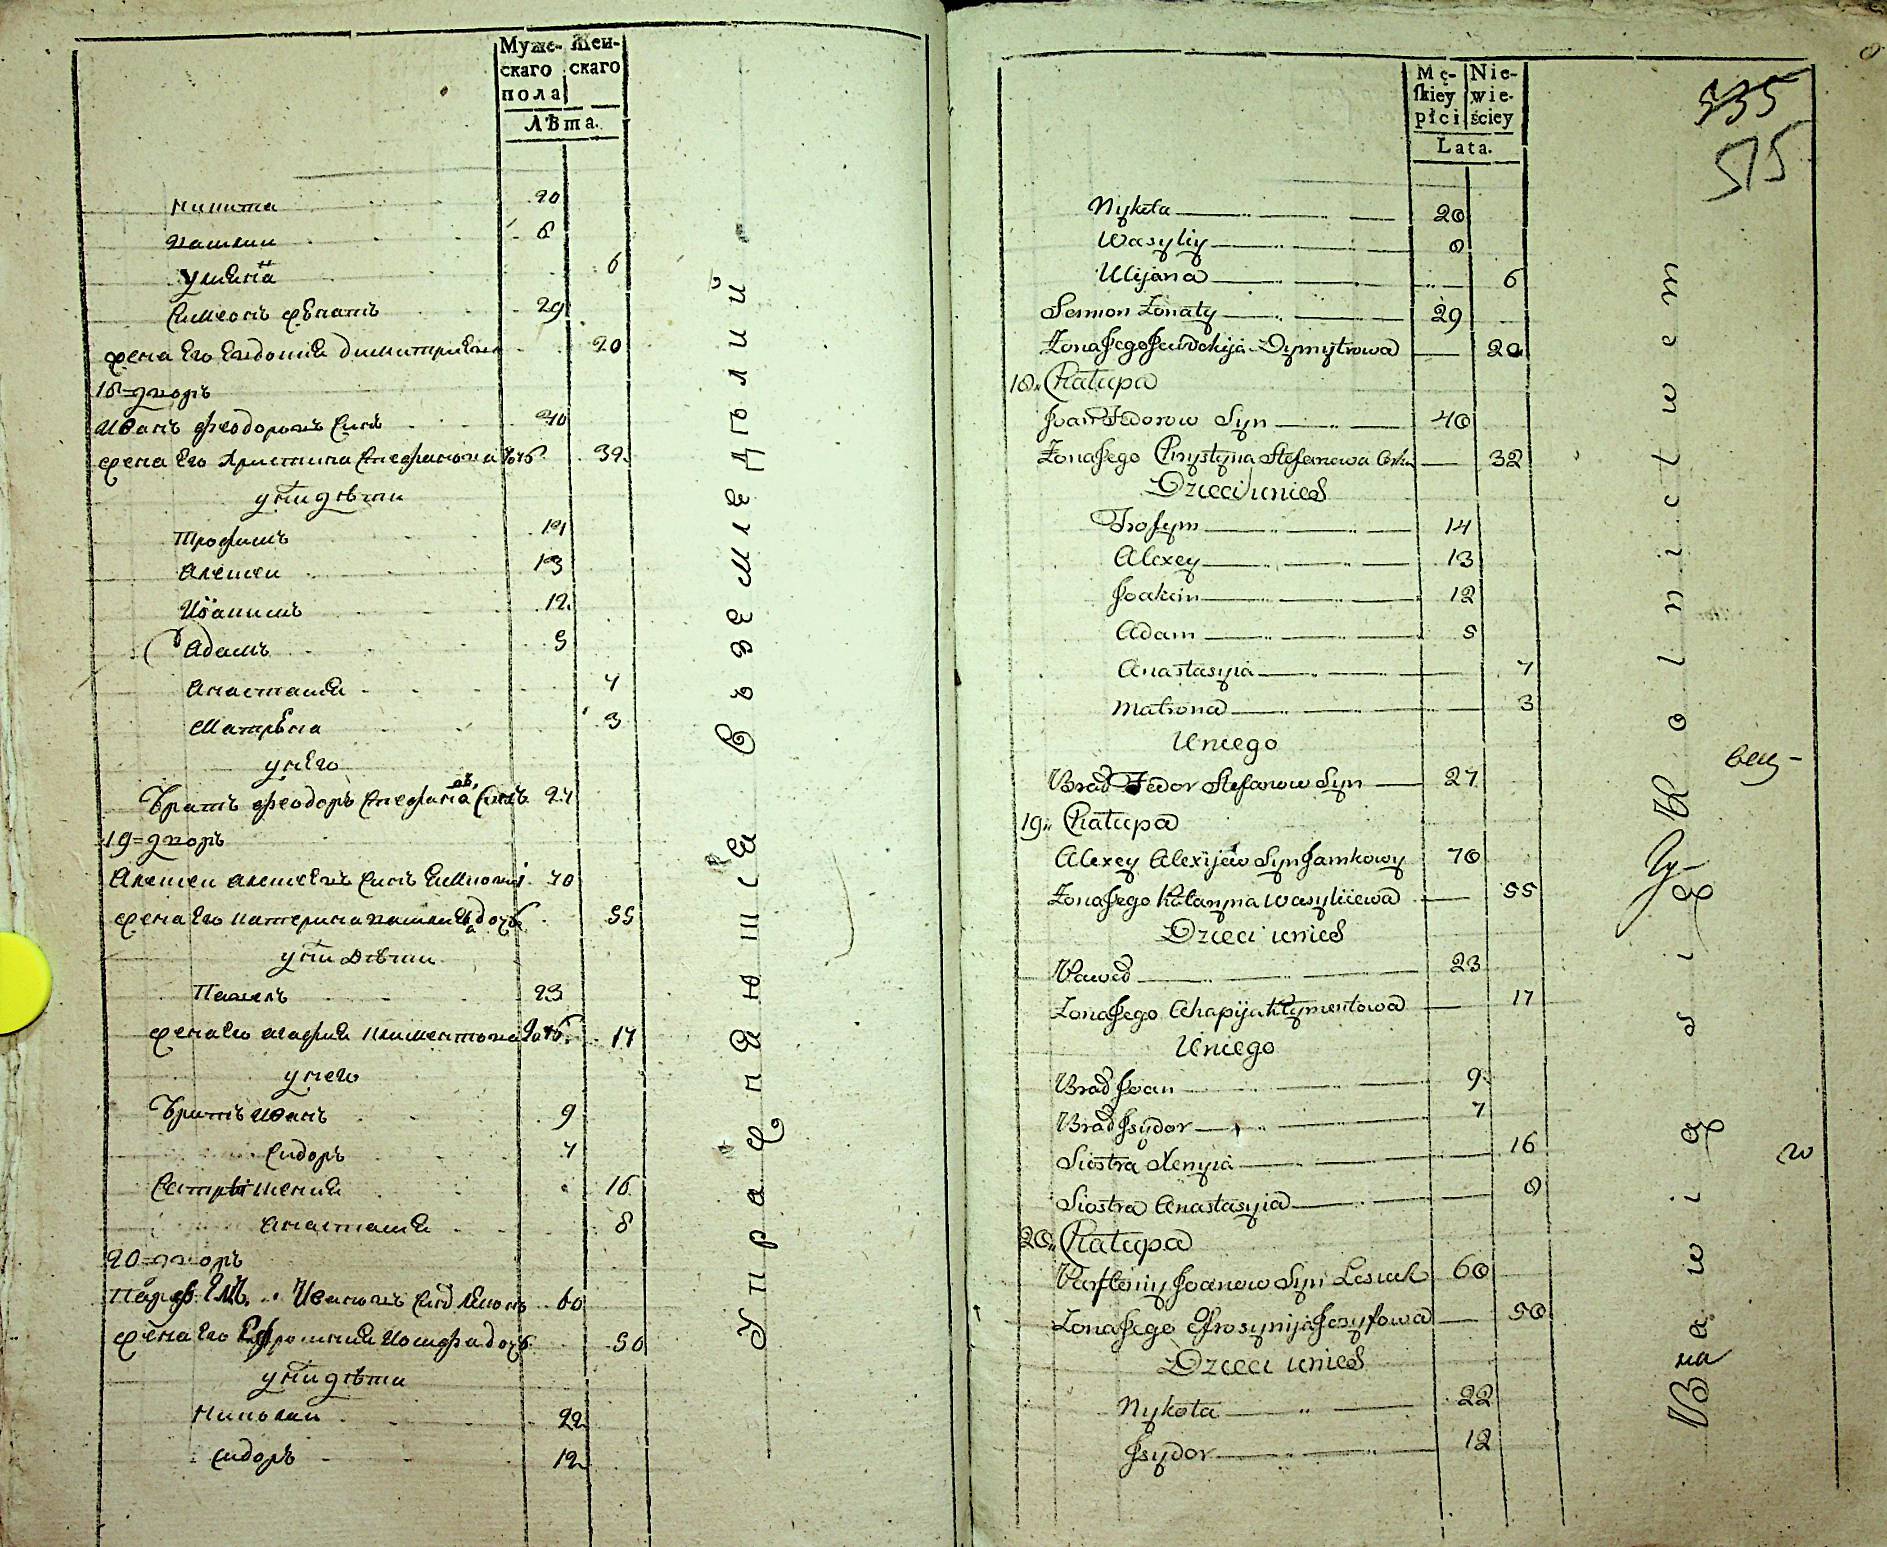 Муже- Жен-
скаго скаго
пола
Лѣта.
Никита 20
Василий 8
Улияна 6
Симеонъ Женатъ 29
Жена Его Евдокия Димитриева 20
18=дворъ
Иванъ Феодоровъ Синъ 40
Жена Его Христина Стефанова дочь 32
у них дѣти
Трофимъ 14
Алексей 13
Иоакимъ 12
Адамъ 5
Анастасия 7
Матрена 3
у него
Братъ Феодоръ Стефановъ Синъ 27
19=дворъ
Алексей Алексеевъ Синъ 70
Жена Его Катерина Василиева дочь 55
у них Дѣти
Павелъ 23
Жена Его Агафия Климентова дочь 17
у него
Братъ Иванъ 9
Сидоръ 7
Сестры Ксения 16
Анастасия 8
20=дворъ
Ивановъ Синъ 60
Жена Его Ефросиния Иосифа дочь 50
у них дѣти
Николай 22
Сидоръ 12
Упражняющся Въземледѣлий
Mę- Nie-
skiey wie-
płci ściey
Lata.
535
515
Nykita 20
Wasyliy 8
Ulijana 6
Semion Żonaty 29
Żona Jego Jewdokija Dymytrowa 20
18. Chałupa
Jwan Fedorow Syn 40
Żona Jego Chrystyna Stefanowa Corka 32
Dzieci u nich
Trofym 14
Alexey 13
Joakim 12
Adam 5
Anastasyia 7
Matrona 3
U niego
Brad Fedor Stefanow Syn 27
19. Chałupa
Alexey Alexijew Syn Jamkowy 70
Żona Jego Kataryna Wasyliiewa 55
Dzieci u nich
Paweł 23
Żona Jego Ahapija Klymentowa 17
U niego
Brad Jwan 9
Brad Jsydor 7
Siostra Xenyia 16
Siostra Anastasyia 8
20. Chałupa
Parfeniy Jwanow Syn Lesiuk 60
Żona Jego Efrosynija Jozyfowa 50
Dzieci u nich
Nykoła 22
Jsydor 12
Bawią się Rolnictwem